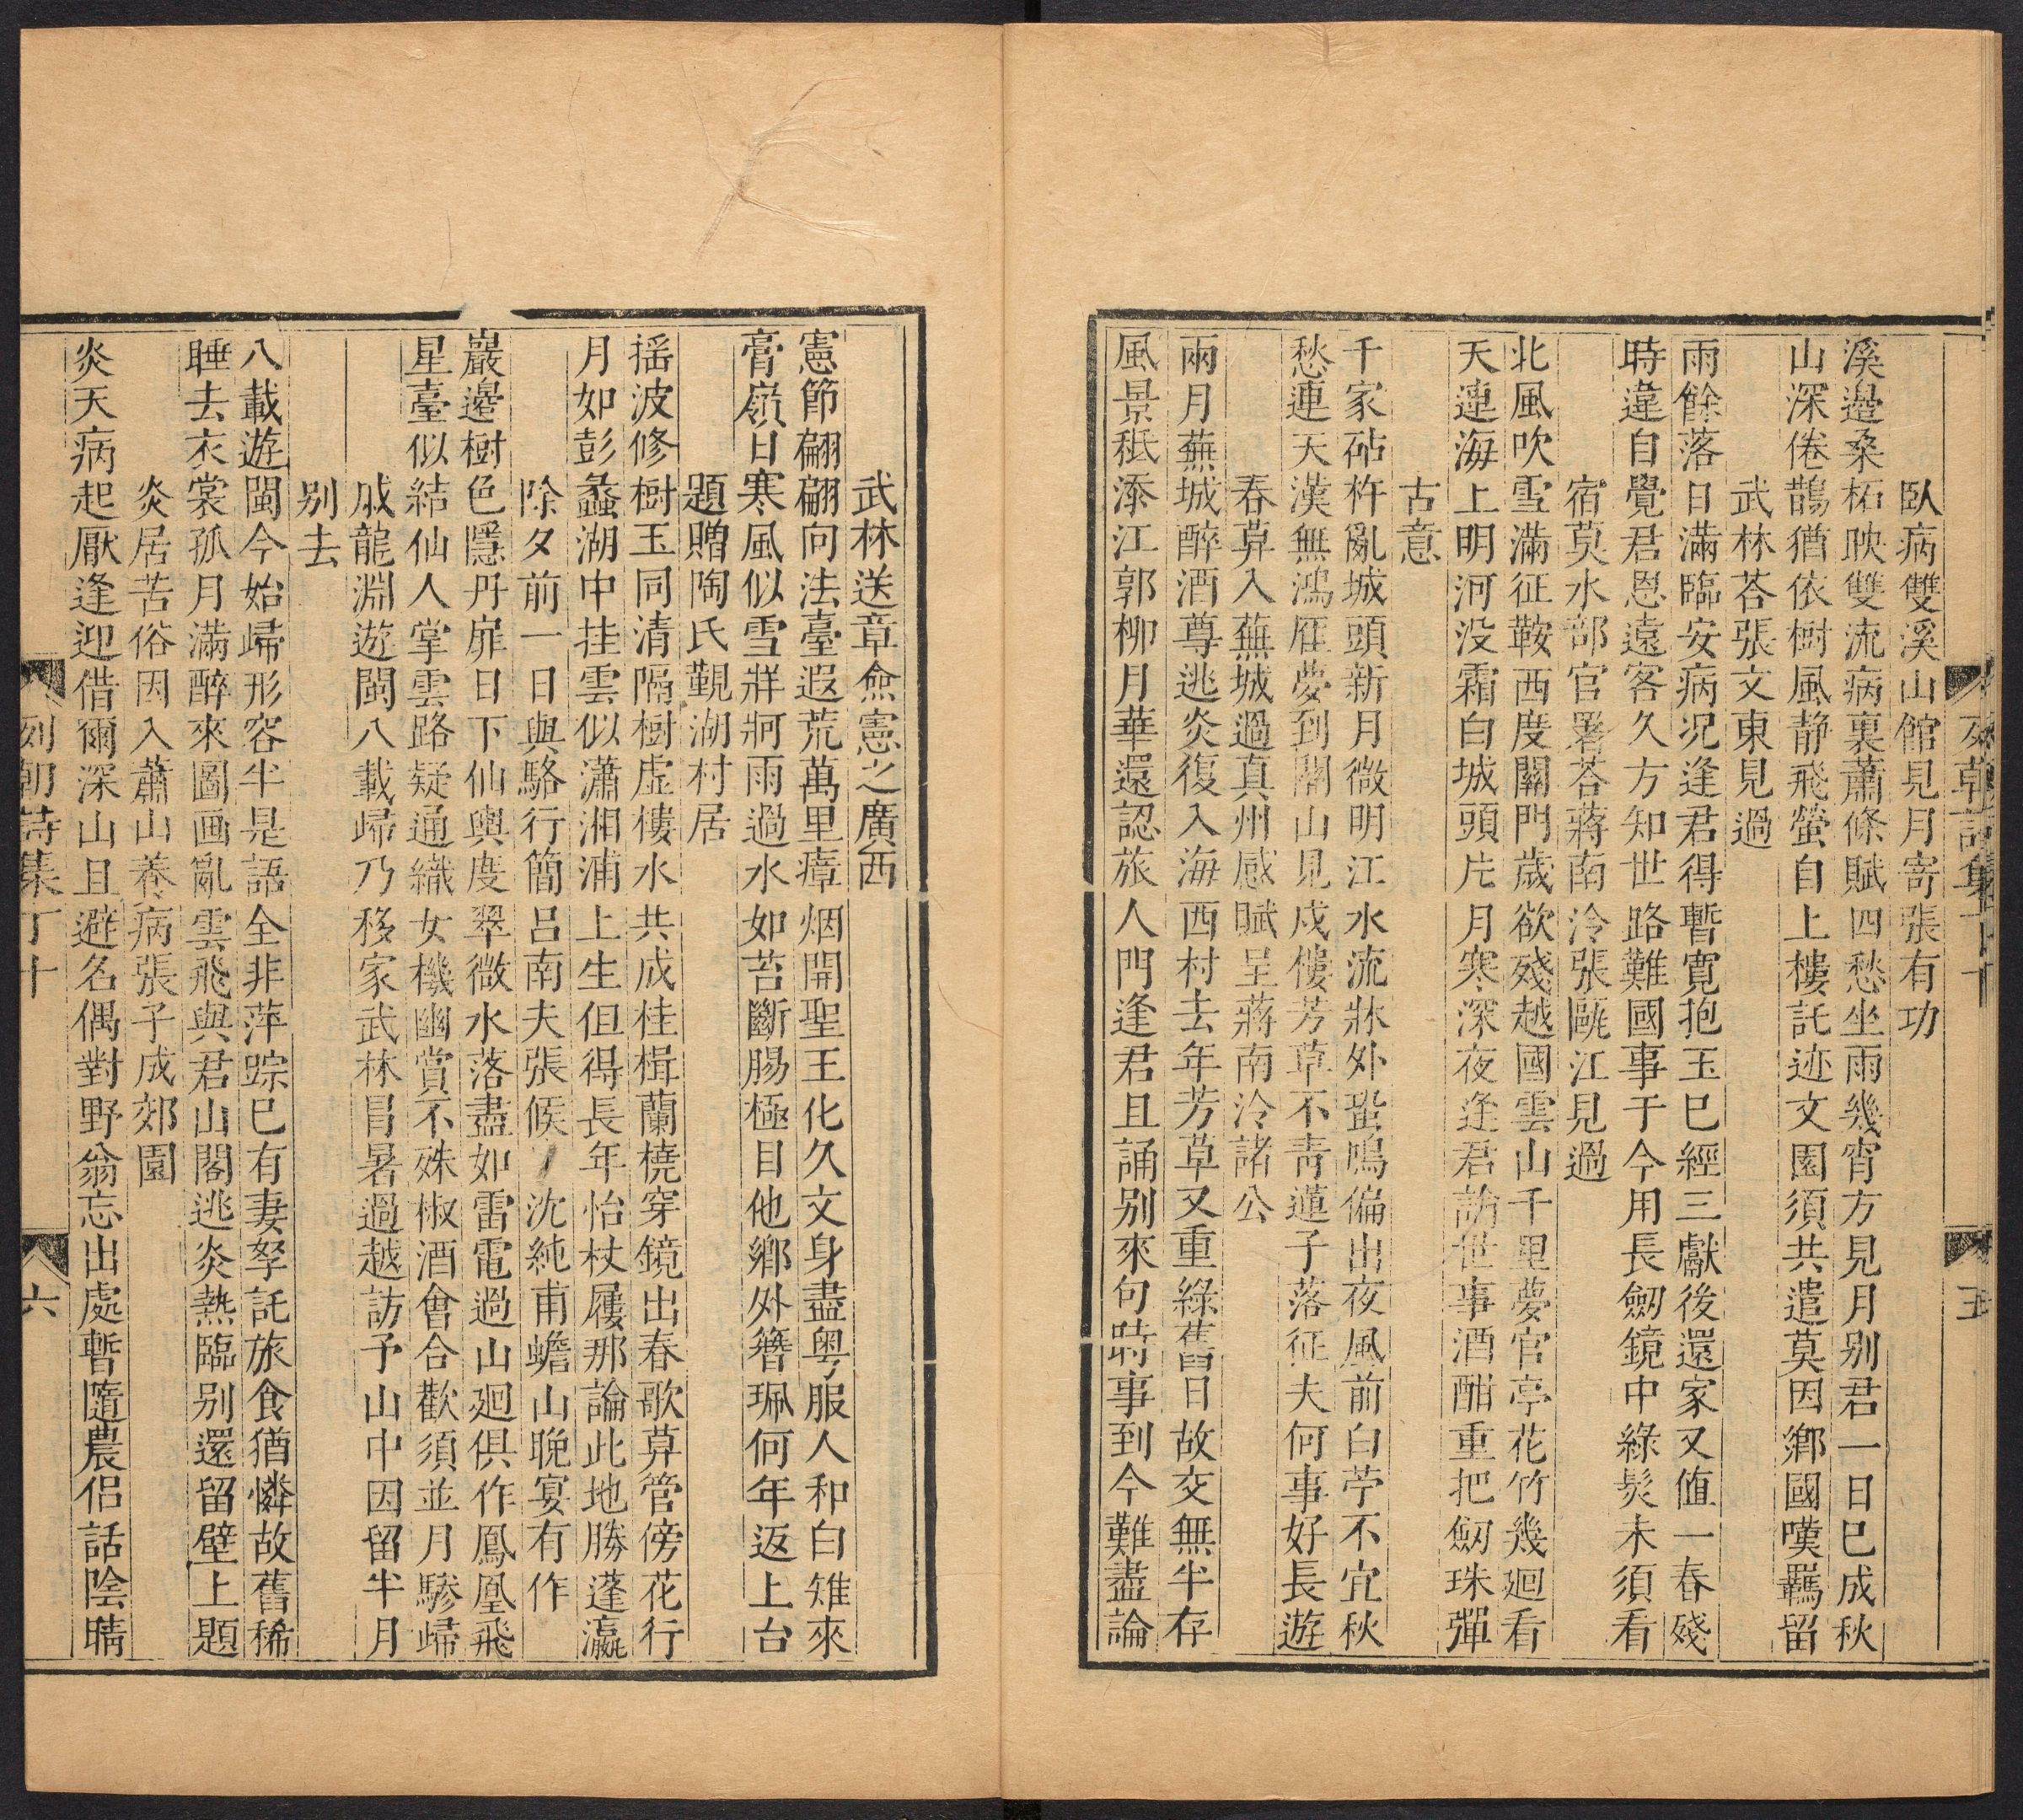 列朝詩集丁十
五
臥病雙溪山館見月寄張有功
溪邉桑柘映雙流病裏蕭條賦四愁坐雨幾宵方見月别君一日巳成秋
山深倦鵲猶依樹風静飛螢自上樓託迹文園須共遣莫因鄉國嘆羈留
武林荅張文東見過
雨餘落日滿臨安病况逢君得暫寛抱玉巳經三獻後還家又値一春殘
時違自覺君恩遠客久方知世路難國事于今用長劒鏡中綠髮未須看
宿莫水部官署荅蔣南泠張甌江見過
北風吹雪滿征鞍西度關門歲欲殘越國雲山千里夢官亭花竹幾廻看
天連海上明河没霜白城頭片月寒深夜逢君訪世事酒酣重把劒珠彈
古意
千家砧杵亂城頭新月微明江水流牀外蛩鳴偏出夜風前白苧不宜秋
愁連天漢無鴻雁夢到關山見戍樓芳草不靑蓮子落征夫何事好長遊
春草入蕪城過真州感賦呈蔣南泠諸公
兩月蕪城醉酒尊逃炎復入海西村去年芳草又重綠舊日故交無半存
風景秖添江郭柳月華還認旅人門逢君且誦别來句時事到今難盡論
武林送章僉憲之廣西
憲節翩翩向法臺遐荒萬里瘴烟開聖王化久文身盡粤服人和白雉來
膏嶺日寒風似雪牂牁雨過水如苔斷腸極目他鄉外簪珮何年返上台
題贈陶氏覲湖村居
揺波修樹玉同清隔樹虚樓水共成桂楫蘭橈穿鏡出春歌草管傍花行
月如彭蠡湖中挂雲似瀟湘浦上生但得長年怡杖屨那論此地勝蓬瀛
除夕前一日與駱行簡呂南夫張候丿沈純甫蟾山晚宴有作
巖邉樹色隱丹扉日下仙輿度翠微水落盡如雷電過山廻俱作鳳凰飛
星臺似結仙人掌雲路疑通織女機幽賞不殊椒酒會合歡須並月驂歸
戚龍淵遊閩八載歸乃移家武林冐暑過越訪予山中因留半月
别去
八載遊閩今始歸形容半是語全非萍踪巳有妻孥託旅食猶憐故舊稀
睡去衣裳孤月滿醉來圖画亂雲飛與君山閣逃炎熱臨别還留壁上題
炎居苦俗因入蕭山養病張子成郊園
炎天病起厭逢迎借爾深山且避名偶對野翁忘出處暫隨農侣話陰晴
列朝詩集丁十
六